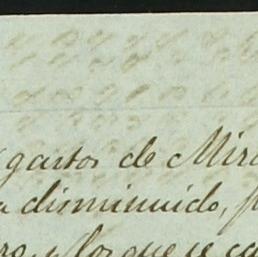 gastos de Mir
disminuido,
los que se ca